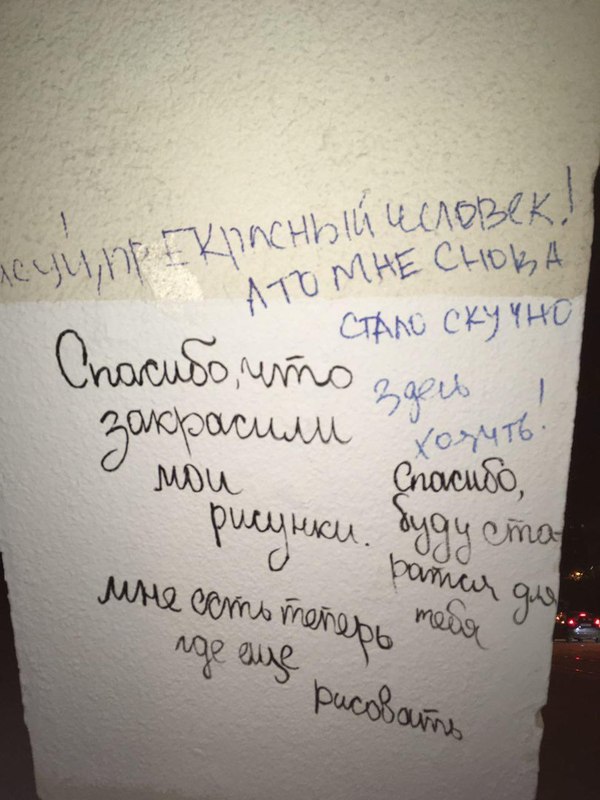 исуй, прЕКРАСНЫЙ ЧЕЛОВЕК!
А ТО МНЕ СНОВА
СТАЛО СКУЧНО
здесь
ходить!
Спасибо, что
закрасили
мои
рисунки.
мне есть теперь
где еще
рисовать
Спасибо,
буду ста-
ратся для
тебя